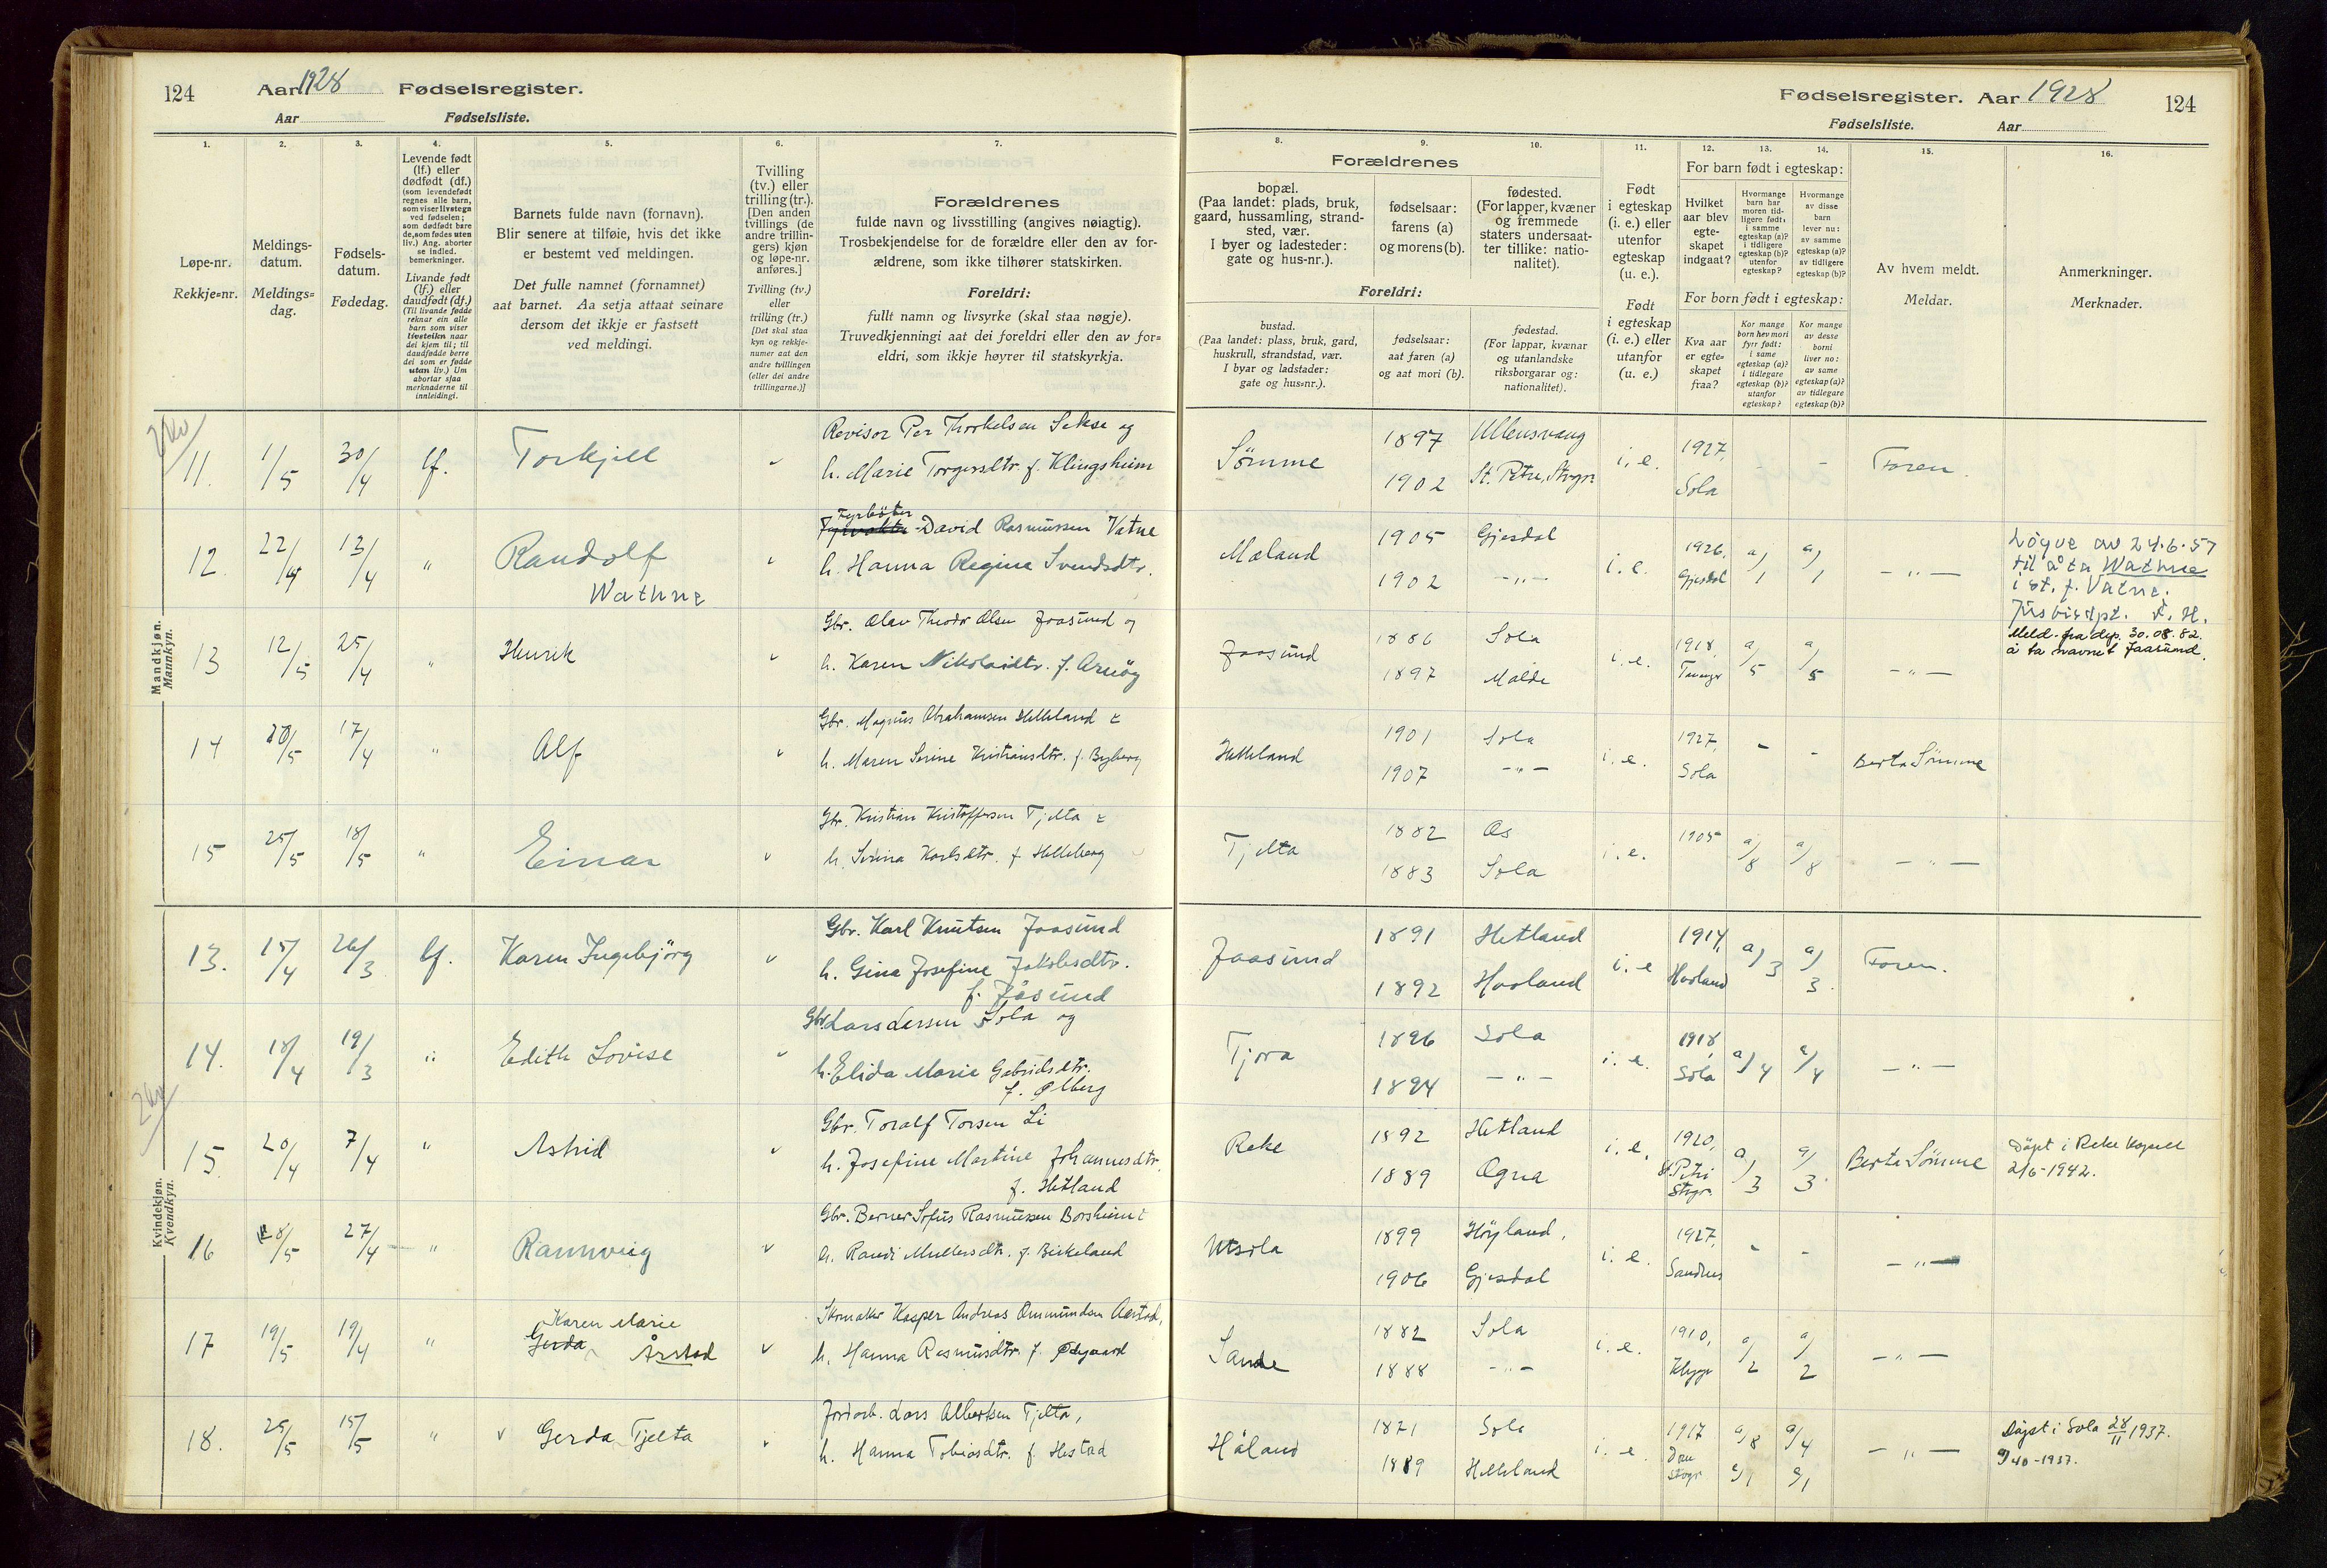 124 Aar 1928 Fødselsregister.
Aar Fødselsliste.
1. 2. 3. 4. 5. 6. 7.
Løpe-nr.
Rekkje=nr.
Meldings-
datum.
Meldings=
dag.
Fødsels-
datum.
Fødedag.
Levende født
(lf.) eller
dødfødt (df.)
(som levendefødt
regnes alle barn,
som viser livstegn
ved fødselen;
som dødfødt bare
de, som fødes uten
liv.) Ang. aborter
se indled.
bemerkninger.
Livande født
(lf.) eller
daudfødt (df.)
(Til livande fødde
reknar ein alle
barn som viser
livsteikn naar
dei kjem til; til
daudfødde berre
dei som er fødde
utan liv.) Um
abortar sjaa
merknaderne til
innleidingi.
Barnets fulde navn (fornavn).
Blir senere at tilføie, hvis det ikke
er bestemt ved meldingen.
Det fulle namnet (fornamnet)
aat barnet. Aa setja attaat seinare
dersom det ikkje er fastsett
ved meldingi.
Tvilling
(tv.) eller
trilling (tr.).
[Den anden
tvillings (de
andre trillin-
gers) kjøn
og løpe-nr.
anføres.]
Tvilling (tv.)
eller
trilling (tr.)
[Det skal staa
kyn og rekkje-
numer aat den
andre tvillingen
(eller dei andre
trillingarne.)]
Forældrenes
fulde navn og livsstilling (angives nøiagtig).
Trosbekjendelse for de forældre eller den av for-
ældrene, som ikke tilhører statskirken.
Foreldri:
fullt namn og livsyrke (skal staa nøgje).
Truvedkjenningi aat dei foreldri eller den av for=
eldri, som ikkje høyrer til statskyrkja.
Mandkjøn.
Mannkyn.
11. 1/5 30/4 lf. Torkjell
Revisor Per Thorkelsen Sekse og
h. Marie Torgersdtr. f. Klingsheim
12. 22/4 13/4 " Randolf
Wathne
Fyrbøter
David Rasmussen Vatne
h. Hanna Regine Svendsdtr.
13 12/5 25/4 " Henrik
Gbr. Olav Theodor Olsen Jaasund og
h. Karen Nikolaidtr. f.
14 20/5 17/4 " Alf
Gbr. Magnus Abrahamsen Helleland &
h. Maren Serine Kristiansdtr. f. Byberg
15 25/5 18/5 " Einar
Gbr. Kristian Kristoffersen Tjelta &
h. Serina Karlsdtr. f. Helleberg
Kvindekjøn.
Kvendkyn.
13. 15/4 26/3 lf. Karen Ingebjörg
Gbr. Karl Knutsen Jaasund
h. Gina Josefine Jakobsdtr.
f. Jåsund
14. 18/4 19/3 " Edith Lovise
Gbr Lars Larsen Sola og
h. Elida Marie Gabrielsdtr.
f. Ølberg
15. 20/4 7/4 " Astrid
Gbr. Toralf Torsen Li
h. Josefine Martine Johannesdtr.
f. Hetland
16 28/5 27/4 " Rannveig
Gbr. Berner Sofus Rasmussen Borsheim &
h. Randi Mullersdtr. f. Birkeland
17 19/5 19/4 " Karen Marie
Gerda Årstad
Skomaker Kasper Andreas Ommundsen Aarstad,
h. Hanna Rasmusdtr. f. Ødegaard
18. 25/5 15/5 " Gerda Tjelta
Jordarb. Lars Albertsen Tjelta,
h. Hanna Tobiasdtr. f. Hestad
Fødselsregister. Aar 1928 124
Fødselsliste. Aar
8. 9. 10. 11. 12. 13. 14. 15. 16.
Forældrenes
bopæl.
(Paa landet: plads, bruk,
gaard, hussamling, strand-
sted, vær.
I byer og ladesteder:
gate og hus-nr.).
fødselsaar:
farens (a)
og morens (b).
fødested.
(For lapper, kvæner
og fremmede
staters undersaat-
ter tillike: natio-
nalitet).
Foreldri:
bustad.
(Paa landet: plass, bruk, gard,
huskrull, strandstad, vær.
I byar og ladstader:
gate og hus=nr.).
fødselsaar:
aat faren (a)
og aat mori (b).
fødestad.
(For lappar, kvænar
og utanlandske
riksborgarar og:
nationalitet).
Født
i egteskap
(i. e.) eller
utenfor
egteskap
(u. e.).
Født
i egteskap
(i. e.) eller
utanfor
(u. e.)
For barn født i egteskap:
Hvilket
aar blev
egte-
skapet
indgaat?
Hvormange
barn har
moren tid-
ligere født:
i samme
egteskap (a)?
i tidligere
egteskap (b)?
utenfor
egteskap?
Hvormange
av disse
barn
lever nu:
av samme
egteskap (a)?
av tidligere
egteskap (b)?
For born født i egteskap:
Kva aar
er egte=
skapet
fraa?
Kor mange
born hev mori
fyrr født:
i same
egteskap (a)?
i tidlegare
egteskap (b)?
utanfor
egteskap?
Kor mange
av desse
borni
liver no:
av same
egteskap (a)?
av tidlegare
egteskap (b)?
Av hvem meldt.
Meldar.
Anmerkninger.
Merknader.
Sömme 1897 Ullensvang i. e. 1927, - - Faren.
1902 St. Petri, Stvgr. Sola
Mæland 1905 Gjesdal i. e. 1926, a/1 a/1 - " -
1902 - " - Gjesdal
Löyve av 24.6.57
til å ta Wathne
i st. f. Vatne.
Jusdisdpt.
Jaasund 1886 Sola i. e. 1918, a/5 a/5 - " -
1897 Molde
Meld. fra dep. 30.08.82.
å ta navnet Jaasund.
Helleland 1901 Sola i. e. 1927, - - Berta Sömme
1907 - " - Sola
Tjelta 1882 Os i. e. 1905 a/8 a/8 - " -
1883 Sola
Jaasund 1891 Hetland i. e 1914, a/3 a/3 Faren.
1892 Haaland Haaland
Tjora 1896 Sola i. e. 1918, a/4 a/4 - " -
1894 - " - Sola
Reke 1892 Hetland i. e. 1920, a/3 a/3 Berta Sömme
1889 Ogna St Petri
Stvgr.
Döpt i Reke kapell
2/6-1942.
Utsola 1899 Höyland, i. e. 1927, - - - " -
1906 Gjesdal Sandnes
Sande 1882 Sola i. e. 1910, a/2 a/2 - " -
1888 - " - Klepp
Håland 1871 Sola i. e 1917 a/8 a/4 - " -
1889 Helleland Dom
stvgr
Döpt i Sola 28/11 1937.